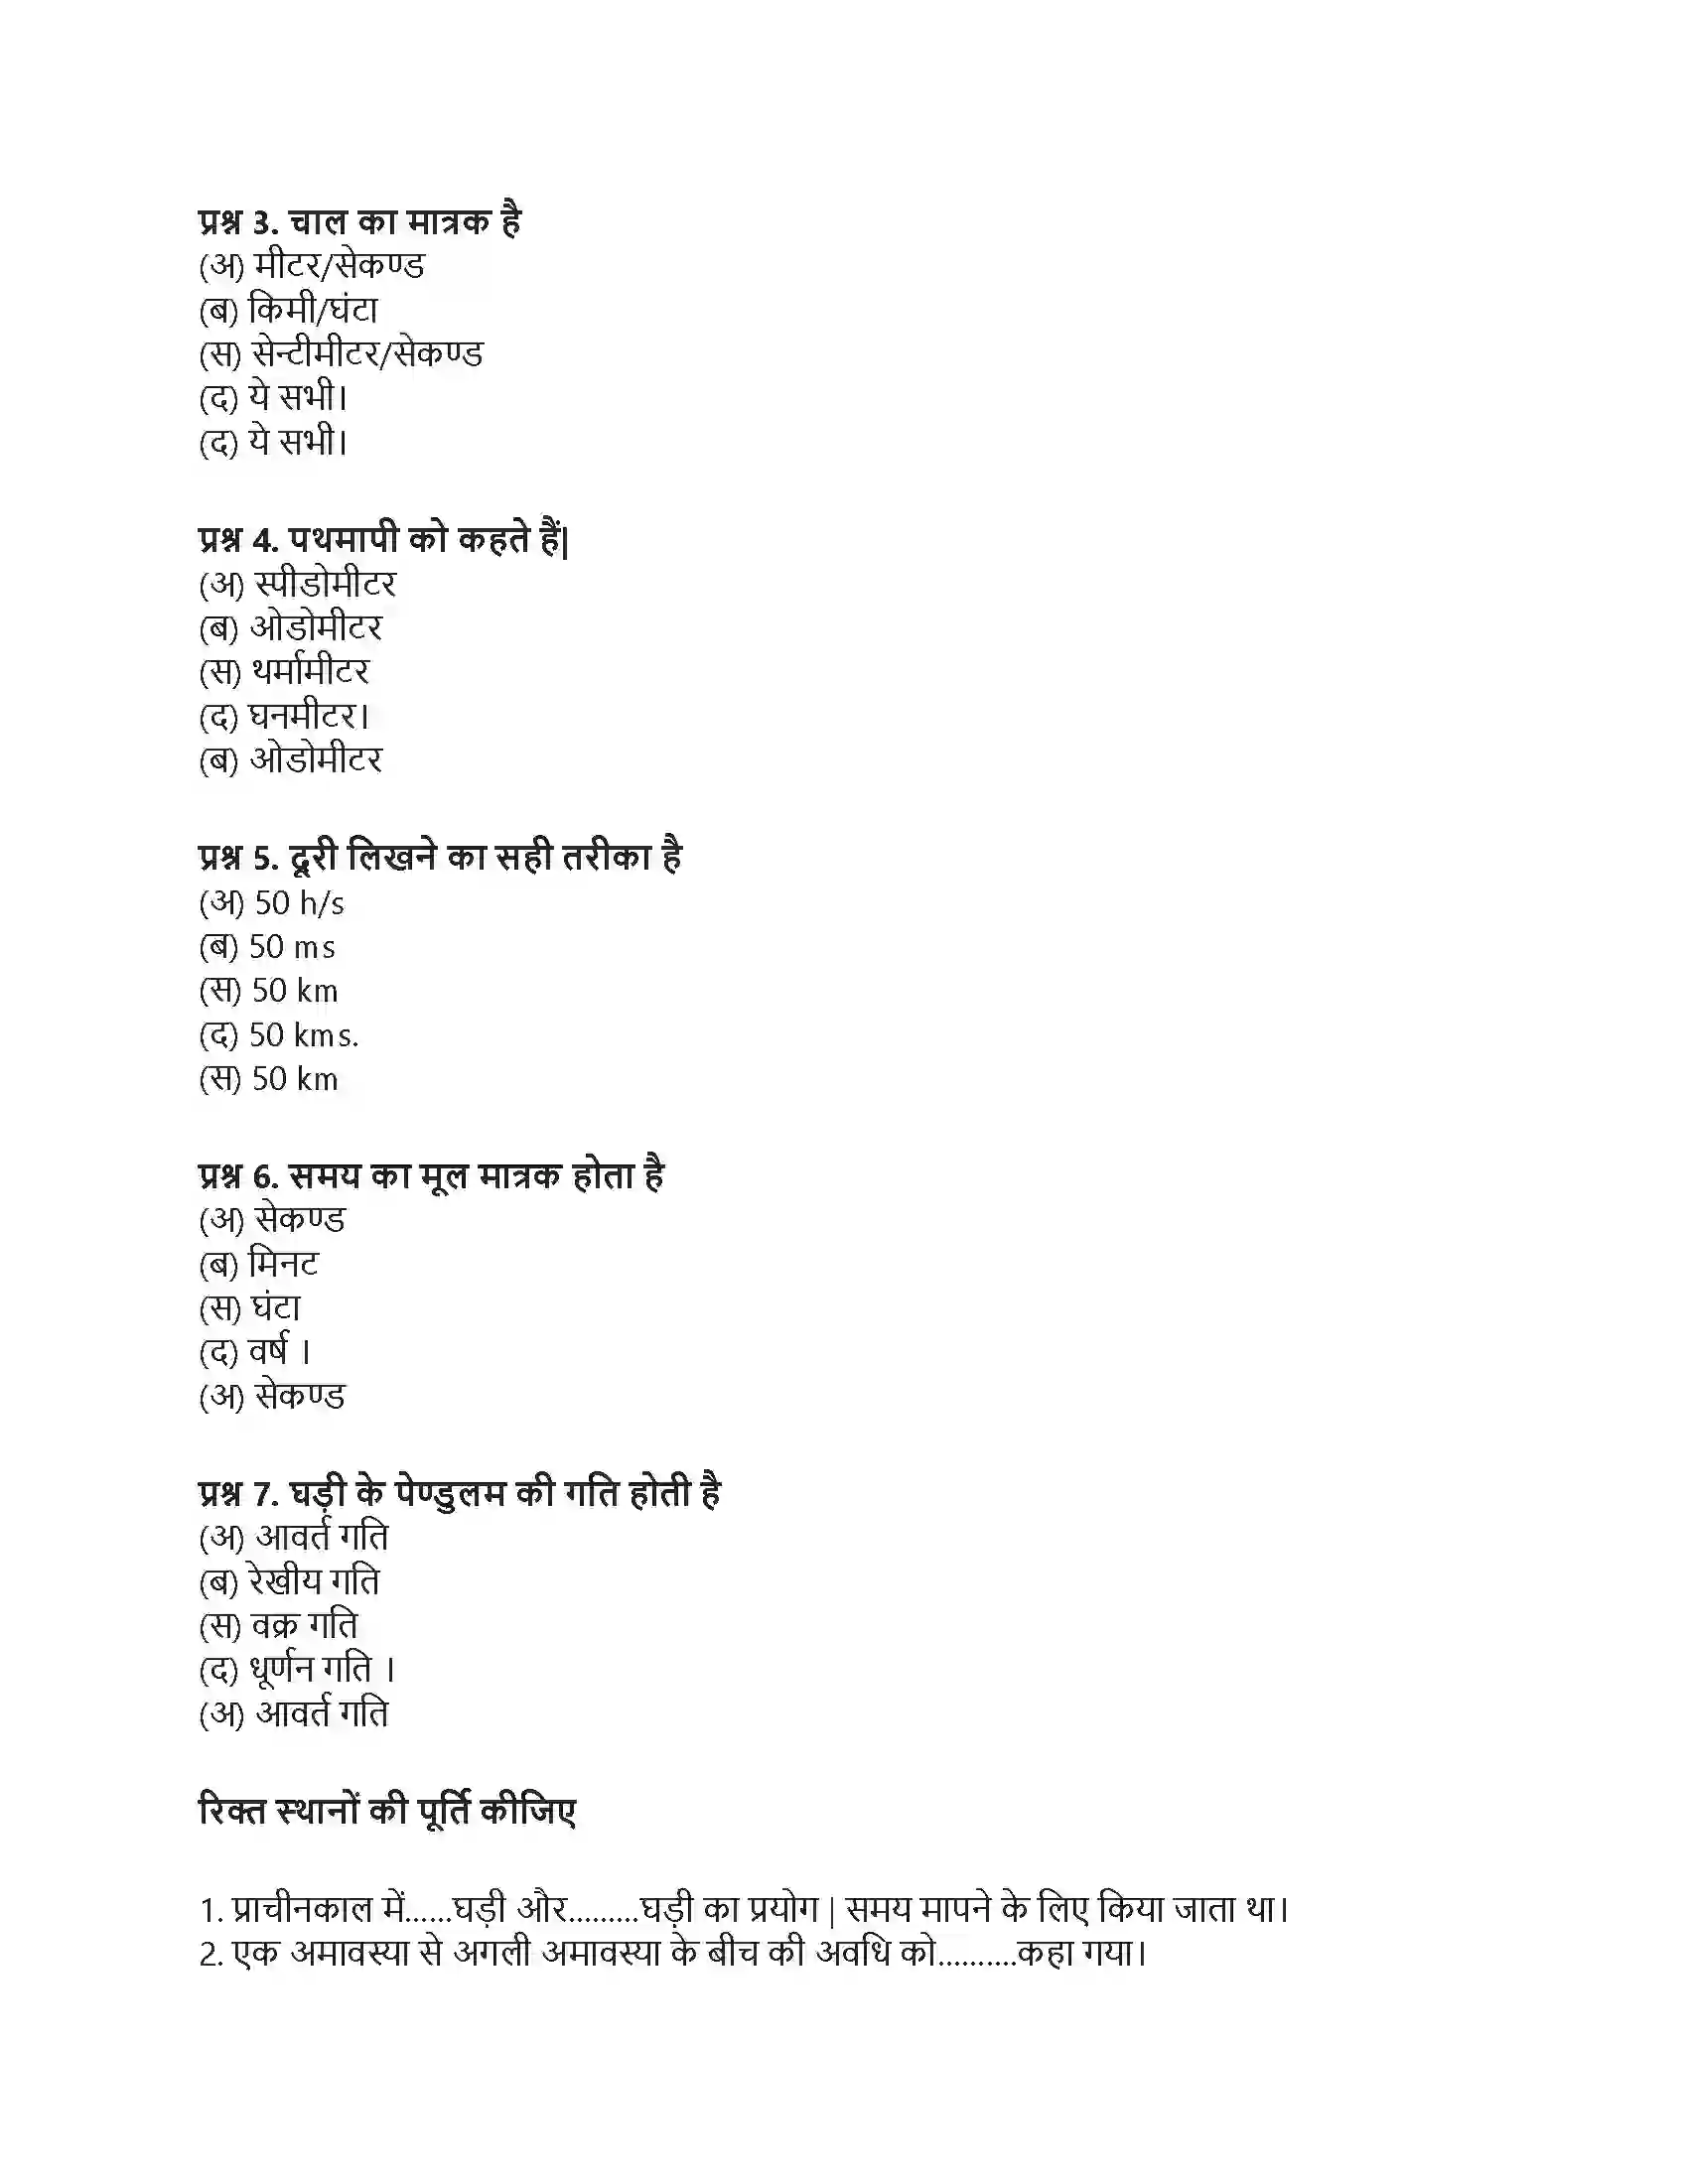 प्रश्न 3. चाल का मात्रक है
(अ) मीटर/सेकण्ड
(ब) किमी/घंटा
(स) सेन्टीमीटर/सेकण्ड
(द) ये सभी।
(द) ये सभी।
प्रश्न 4. पथमापी को कहते हैं|
(अ) स्पीडोमीटर
(ब) ओडोमीटर
(स) थर्मामीटर
(द) घनमीटर।
(ब) ओडोमीटर
प्रश्न 5. दूरी लिखने का सही तरीका है
(अ) 50 h/s
(ब) 50 ms
(स) 50 km
(द) 50 kms.
(स) 50 km
प्रश्न 6. समय का मूल मात्रक होता है
(अ) सेकण्ड
(ब) मिनट
(स) घंटा
(द) वर्ष ।
(अ) सेकण्ड
प्रश्न 7. घड़ी के पेण्डुलम की गति होती है
(अ) आवर्त गति
(ब) रेखीय गति
(स) वक्र गति
(द) धूर्णन गति ।
(अ) आवर्त गति
रिक्त स्थानों की पूर्ति कीजिए
1. प्राचीनकाल में......घड़ी और.........घड़ी का प्रयोग | समय मापने के लिए किया जाता था।
2. एक अमावस्या से अगली अमावस्या के बीच की अवधि को..........कहा गया।